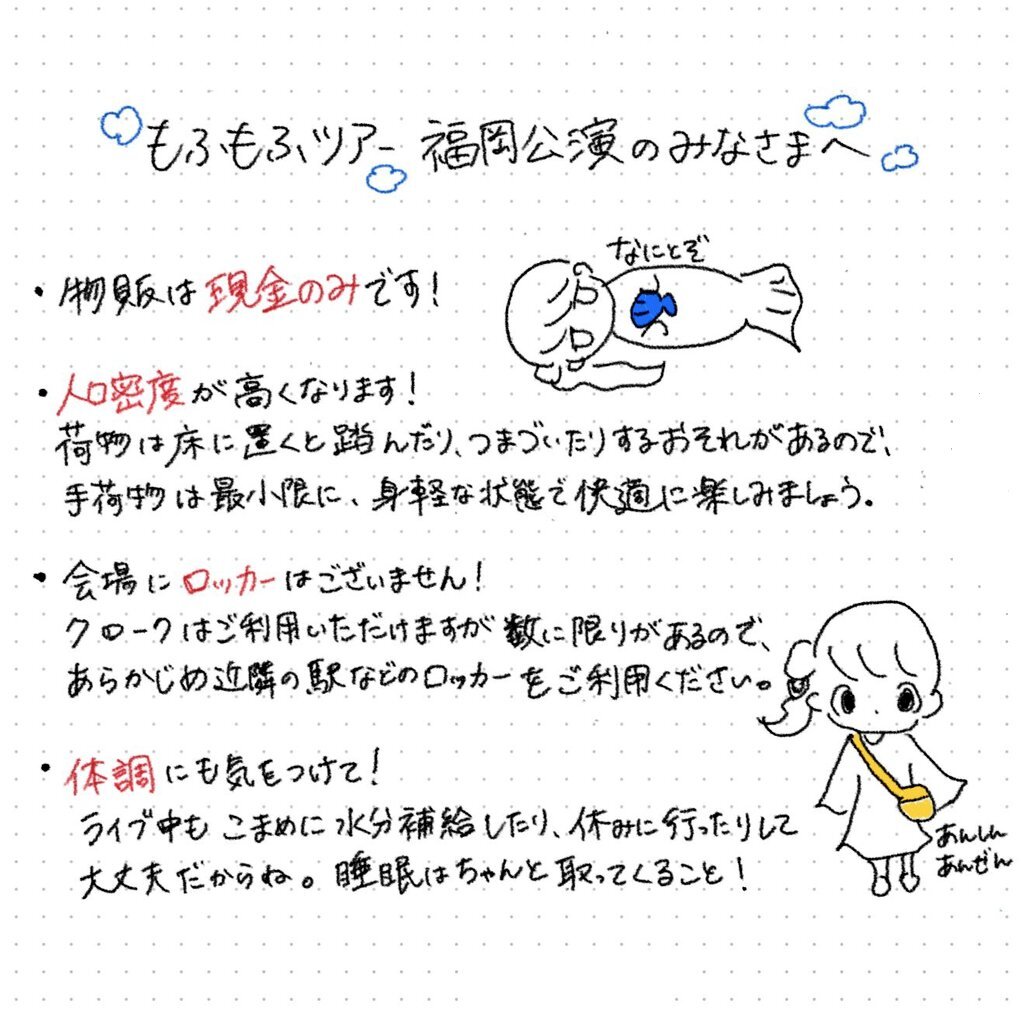 もふもふツアー 福岡公演のみなさまへ
・物販は現金のみです!
なにとぞ
・人口密度が高くなります!
荷物は床に置くと踏んだり、つまづいたりするおそれがあるので、
手荷物は最小限に、身軽な状態で快適に楽しみましょう。
・会場にロッカーはございません!
クロークはご利用いただけますが数に限りがあるので、
あらかじめ近隣の駅などのロッカーをご利用ください。
・体調にも気をつけて!
ライブ中もこまめに水分補給したり、休みに行ったりして
大丈夫だからね。睡眠はちゃんと取ってくること!
あんしん
あんぜん